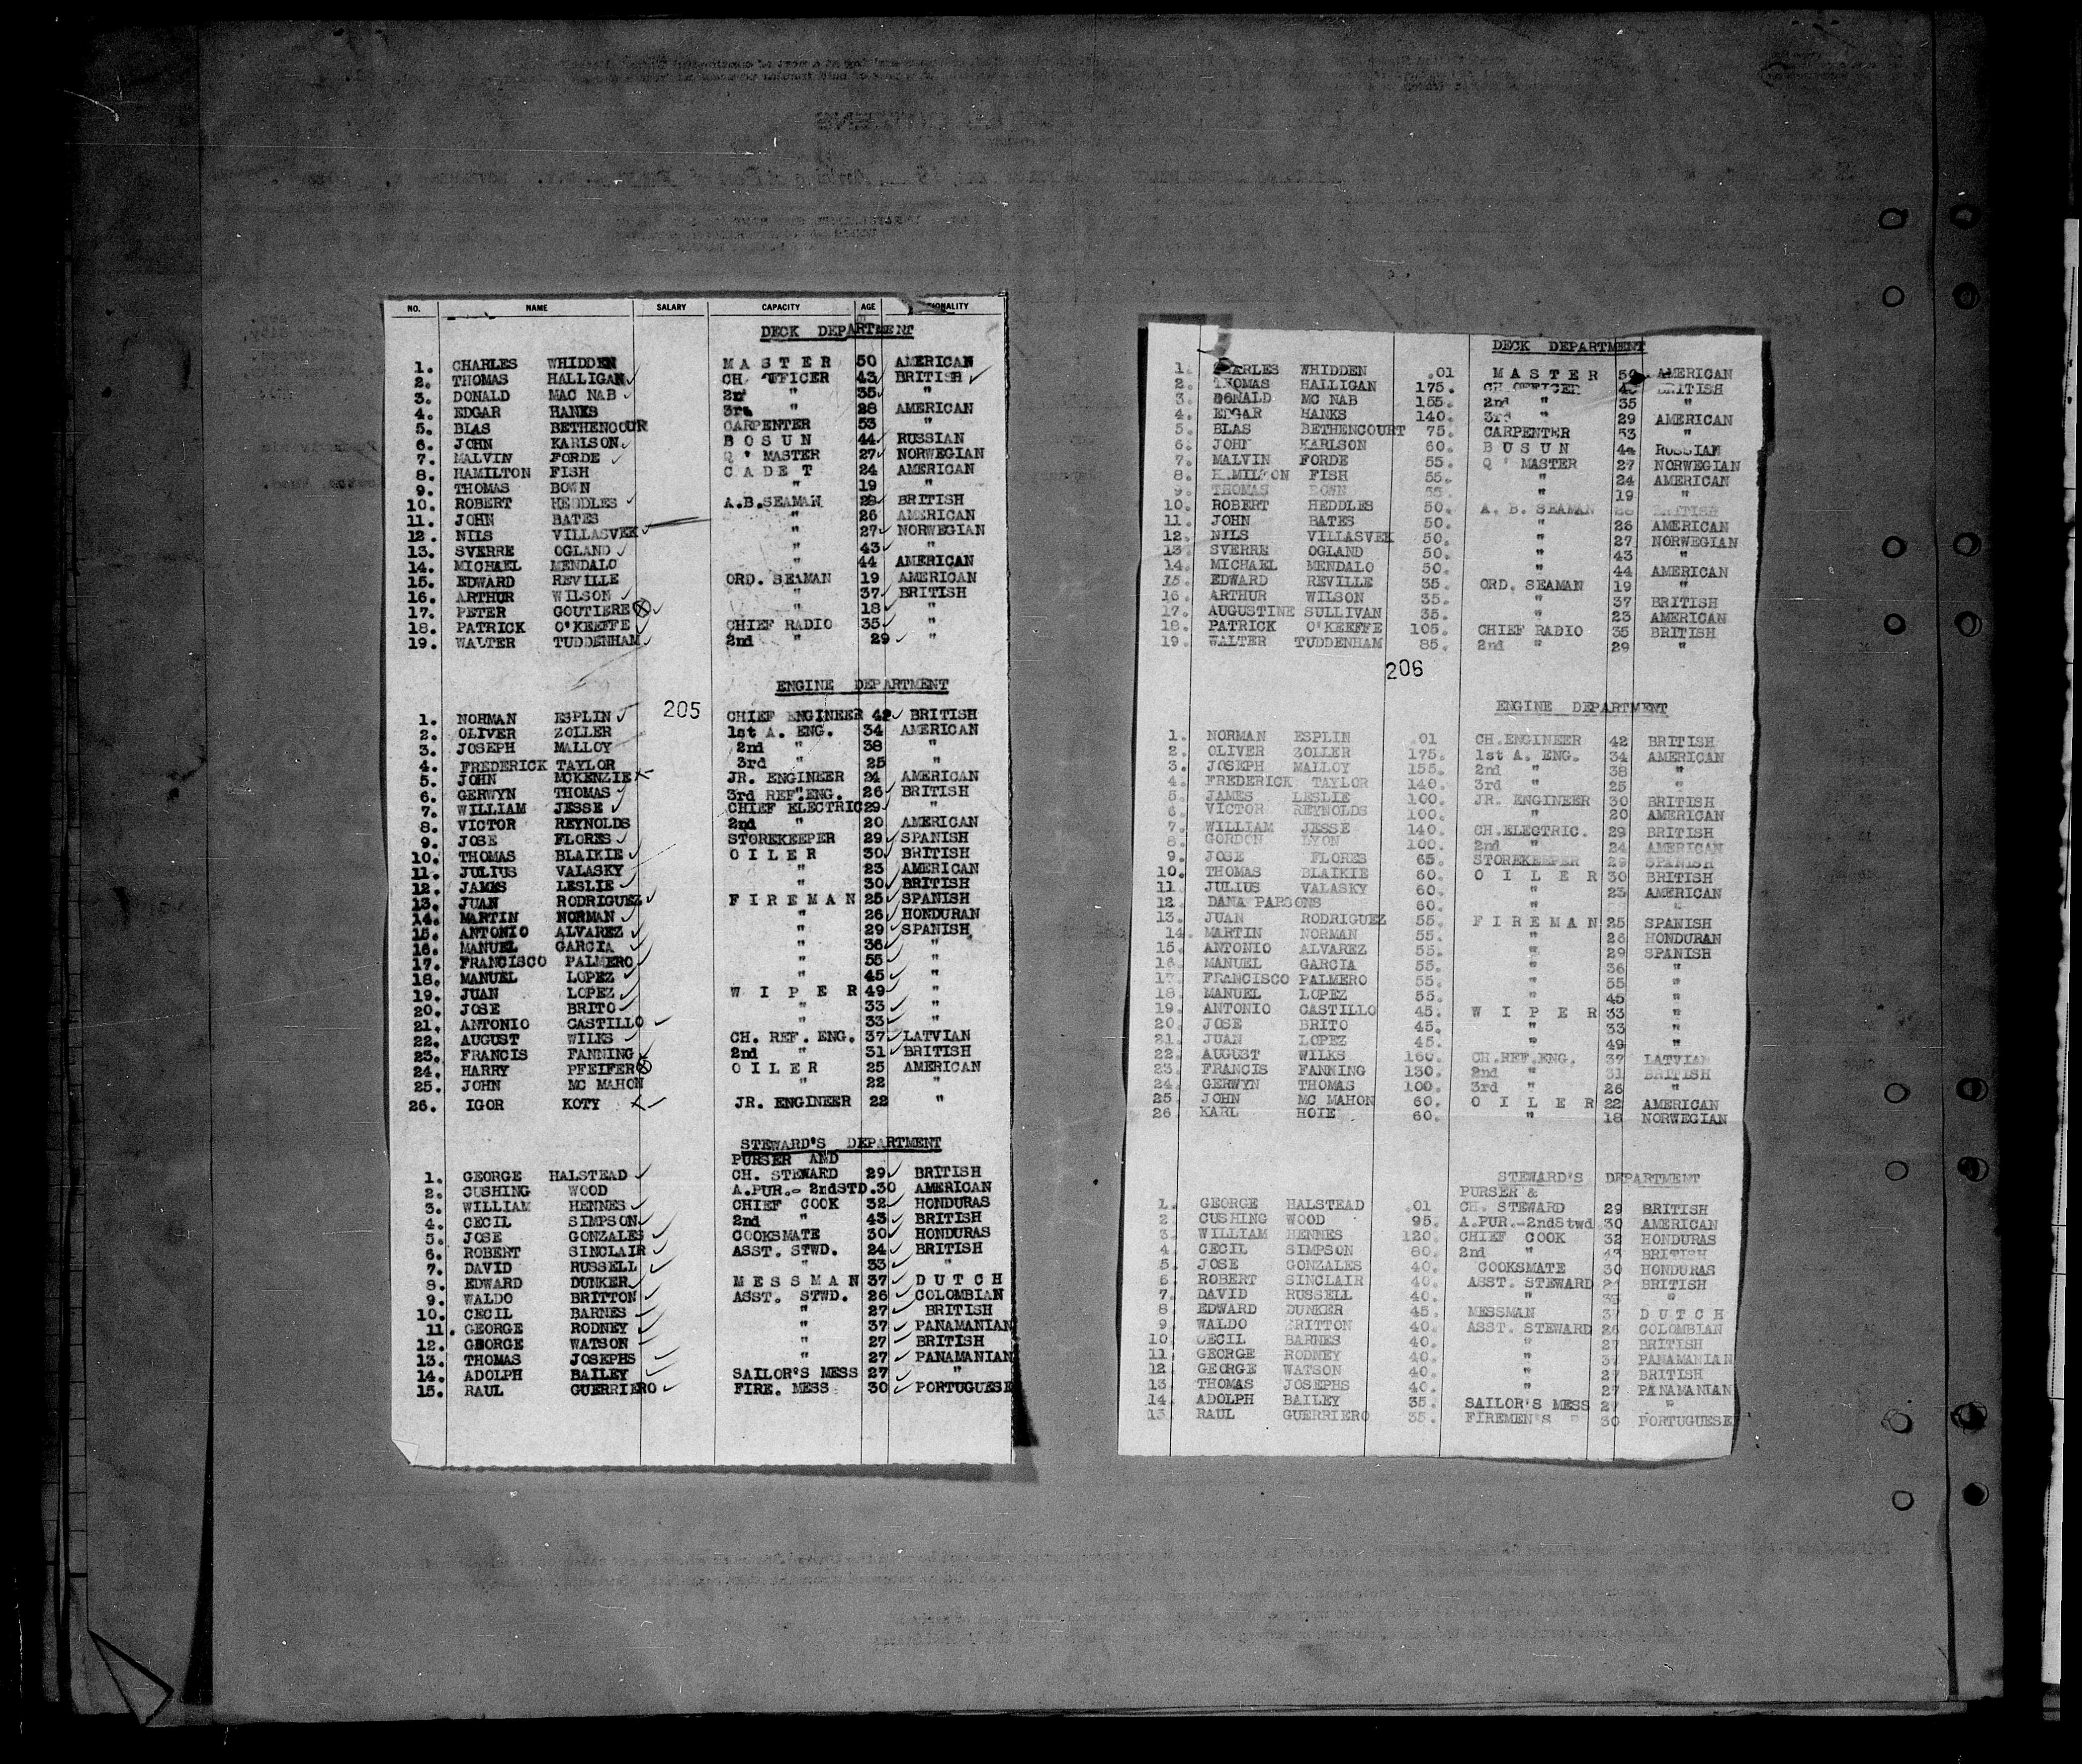 NO. NAME SALARY CAPACITY AGE
DECK DEPARTMENT
1. CHARLES WHIDDEN MASTER 50 AMERICAN
2. THOMAS HALLIGAN CH. OFFICER 43 BRITISH
3. DONALD MAC NAB 2nd " 35 "
4. EDGAR HANKS 3rd " 28 AMERICAN
5. BLAS BETHENCOUR CARPENTER 53 "
6. JOHN KARLSON BOSUN 44 RUSSIAN
7. MALVIN FORDE Q' MASTER 27 NORWEGIAN
8. HAMILTON FISH CADET 24 AMERICAN
9. THOMAS BOWN " 19 "
10. ROBERT HEDDLES A.B.SEAMAN 28 BRITISH
11. JOHN BATES " 26 AMERICAN
12. NILS VILLASVEK " 27 NORWEGIAN
13. SVERRE OGLAND " 43 "
14. MICHAEL MENDALO " 44 AMERICAN
15. EDWARD REVILLE ORD. SEAMAN 19 AMERICAN
16. ARTHUR WILSON " 37 BRITISH
17. PETER GOUTIERE " 18 "
18. PATRICK O'KEEFFE CHIEF RADIO 35 "
19. WALTER TUDDENHAM 2nd " 29 "
ENGINE DEPARTMENT
205
1. NORMAN ESPLIN CHIEF ENGINEER 42 BRITISH
2. OLIVER ZOLLER 1st A. ENG. 34 AMERICAN
3. JOSEPH MALLOY 2nd " 38 "
4. FREDERICK TAYLOR 3rd " 25 "
5. JOHN MCKENZIE JR. ENGINEER 24 AMERICAN
6. GERWYN THOMAS 3rd REF.ENG. 26 BRITISH
7. WILLIAM JESSE CHIEF ELECTRIC 29 "
8. VICTOR REYNOLDS 2nd " 20 AMERICAN
9. JOSE FLORES STOREKEEPER 29 SPANISH
10. THOMAS BLAIKIE OILER 30 BRITISH
11. JULIUS VALASKY " 23 AMERICAN
12. JAMES LESLIE " 30 BRITISH
13. JUAN RODRIGUEZ FIREMAN 25 SPANISH
14. MARTIN NORMAN " 26 HONDURAN
15. ANTONIO ALVAREZ " 29 SPANISH
16. MANUEL GARCIA " 36 "
17. FRANCISCO PALMERO " 55 "
18. MANUEL LOPEZ " 45 "
19. JUAN LOPEZ WIPER 49 "
20. JOSE BRITO " 33 "
21. ANTONIO CASTILLO " 33 "
22. AUGUST WILKS CH. REF. ENG. 37 LATVIAN
23. FRANCIS FANNING 2nd " 31 BRITISH
24. HARRY PFEIFER OILER 25 AMERICAN
25. JOHN MC MAHON " 22 "
26. IGOR KOTY JR. ENGINEER 22 "
STEWARD'S DEPARTMENT
PURSER AND
1. GEORGE HALSTEAD CH. STEWARD 29 BRITISH
2. CUSHING WOOD A.PUR.- 2ndSTD. 30 AMERICAN
3. WILLIAM HENNES CHIEF COOK 32 HONDURAS
4. CECIL SIMPSON 2nd " 43 BRITISH
5. JOSE GONZALES COOKSMATE 30 HONDURAS
6. ROBERT SINCLAIR ASST. STWD. 24 BRITISH
7. DAVID RUSSELL " 33 "
8. EDWARD DUNKER MESSMAN 37 DUTCH
9. WALDO BRITTON ASST. STWD. 26 COLOMBIAN
10. CECIL BARNES " 27 BRITISH
11. GEORGE RODNEY " 37 PANAMANIAN
12. GEORGE WATSON " 27 BRITISH
13. THOMAS JOSEPHS " 27 PANAMANIAN
14. ADOLPH BAILEY SAILOR'S MESS 27 "
15. RAUL GUERRIERO FIRE. MESS 30 PORTUGUESE
DECK DEPARTMENT
1. CHARLES WHIDDEN .01 MASTER 50 AMERICAN
2. THOMAS HALLIGAN 175. CH.OFFICER 43 BRITISH
3. DONALD MC NAB 155. 2nd " 35 "
4. EDGAR HANKS 140. 3rd " 29 AMERICAN
5. BLAS BETHENCOURT 75. CARPENTER 53 "
6. JOHN KARLSON 60. BUSUN 44 RUSSIAN
7. MALVIN FORDE 55. Q' MASTER 27 NORWEGIAN
8. HAMILTON FISH 55. " 24 AMERICAN
9. THOMAS BOWN 55. " 19 "
10. ROBERT HEDDLES 50. A. B. SEAMAN 28 BRITISH
11. JOHN BATES 50. " 26 AMERICAN
12. NILS VILLASVEK 50. " 27 NORWEGIAN
13. SVERRE OGLAND 50. " 43 "
14. MICHAEL MENDALO 50. " 44 AMERICAN
15. EDWARD REVILLE 35. ORD. SEAMAN 19 "
16. ARTHUR WILSON 35. " 37 BRITISH
17. AUGUSTINE SULLIVAN 35. " 23 AMERICAN
18. PATRICK O'KEEFFE 105. CHIEF RADIO 35 BRITISH
19. WALTER TUDDENHAM 85. 2nd " 29 "
206
ENGINE DEPARTMENT
1. NORMAN ESPLIN .01 CH.ENGINEER 42 BRITISH
2. OLIVER ZOLLER 175. 1st A. ENG. 34 AMERICAN
3. JOSEPH MALLOY 155. 2nd " 38 "
4. FREDERICK TAYLOR 140. 3rd " 25 "
5. JAMES LESLIE 100. JR. ENGINEER 30 BRITISH
6. VICTOR REYNOLDS 100. " 20 AMERICAN
7. WILLIAM JESSE 140. CH.ELECTRIC. 29 BRITISH
8. GORDON LYON 100. 2nd " 24 AMERICAN
9. JOSE FLORES 65. STOREKEEPER 29 SPANISH
10. THOMAS BLAIKIE 60. OILER 30 BRITISH
11. JULIUS VALASKY 60. " 23 AMERICAN
12. DANA PARSONS 60. " "
13. JUAN RODRIGUEZ 55. FIREMAN 25 SPANISH
14. MARTIN NORMAN 55. " 26 HONDURAN
15. ANTONIO ALVAREZ 55. " 29 SPANISH
16. MANUEL GARCIA 55. " 36 "
17. FRANCISCO PALMERO 55. " 55 "
18. MANUEL LOPEZ 55. " 45 "
19. ANTONIO CASTILLO 45. WIPER 33 "
20. JOSE BRITO 45. " 33 "
21. JUAN LOPEZ 45. " 49 "
22. AUGUST WILKS 160. CH.REF.ENG. 37 LATVIAN
23. FRANCIS FANNING 130. 2nd " 31 BRITISH
24. GERWYN THOMAS 100. 3rd " 26 "
25. JOHN MC MAHON 60. OILER 22 AMERICAN
26 KARL HOIE 60. " 18 NORWEGIAN
STEWARD'S DEPARTMENT
PURSER &
1. GEORGE HALSTEAD .01 CH. STEWARD 29 BRITISH
2. CUSHING WOOD 95. A.PUR.-2ndStwd 30 AMERICAN
3. WILLIAM HENNES 120. CHIEF COOK 32 HONDURAS
4. CECIL SIMPSON 80. 2nd " 43 BRITISH
5. JOSE GONZALES 40. COOKSMATE 30 HONDURAS
6. ROBERT SINCLAIR 40. ASST. STEWARD 24 BRITISH
7. DAVID RUSSELL 40. " 33 "
8 EDWARD DUNKER 45. MESSMAN 37 DUTCH
9. WALDO BRITTON 40. ASST. STEWARD 26 COLOMBIAN
10. CECIL BARNES 40. " 27 BRITISH
11 GEORGE RODNEY 40. " 37 PANAMANIAN
12. GEORGE WATSON 40. " 27 BRITISH
13 THOMAS JOSEPHS 40. " 27 PANAMANIAN
14. ADOLPH BAILEY 35. SAILOR'S MESS 27 "
15. RAUL GUERRIERO 35. FIREMEN'S " 30 PORTUGUESE